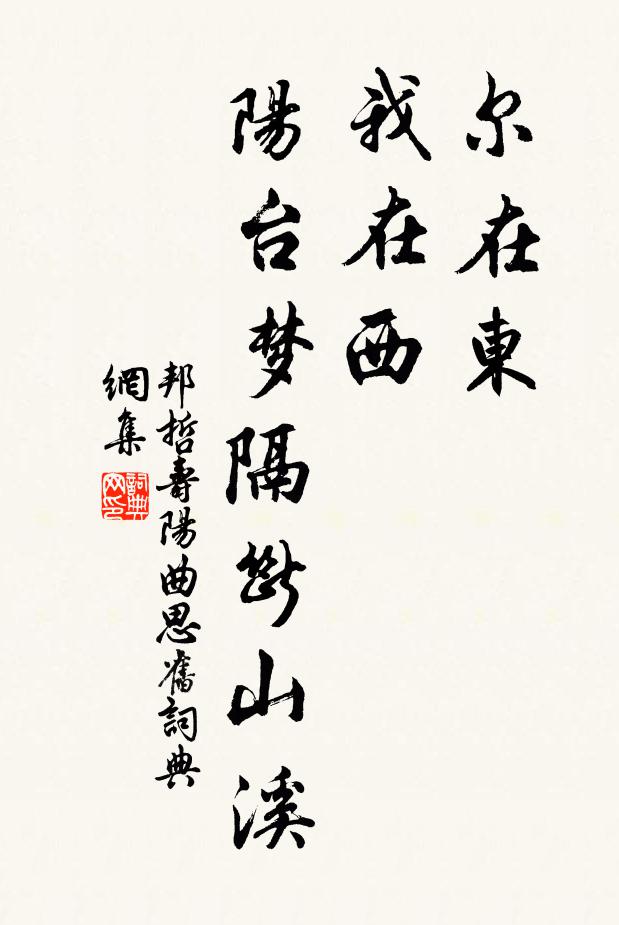 尔在東
我在西
陽台梦隔斷山溪
邦哲壽陽曲思舊詞典
網集
詞典
网印